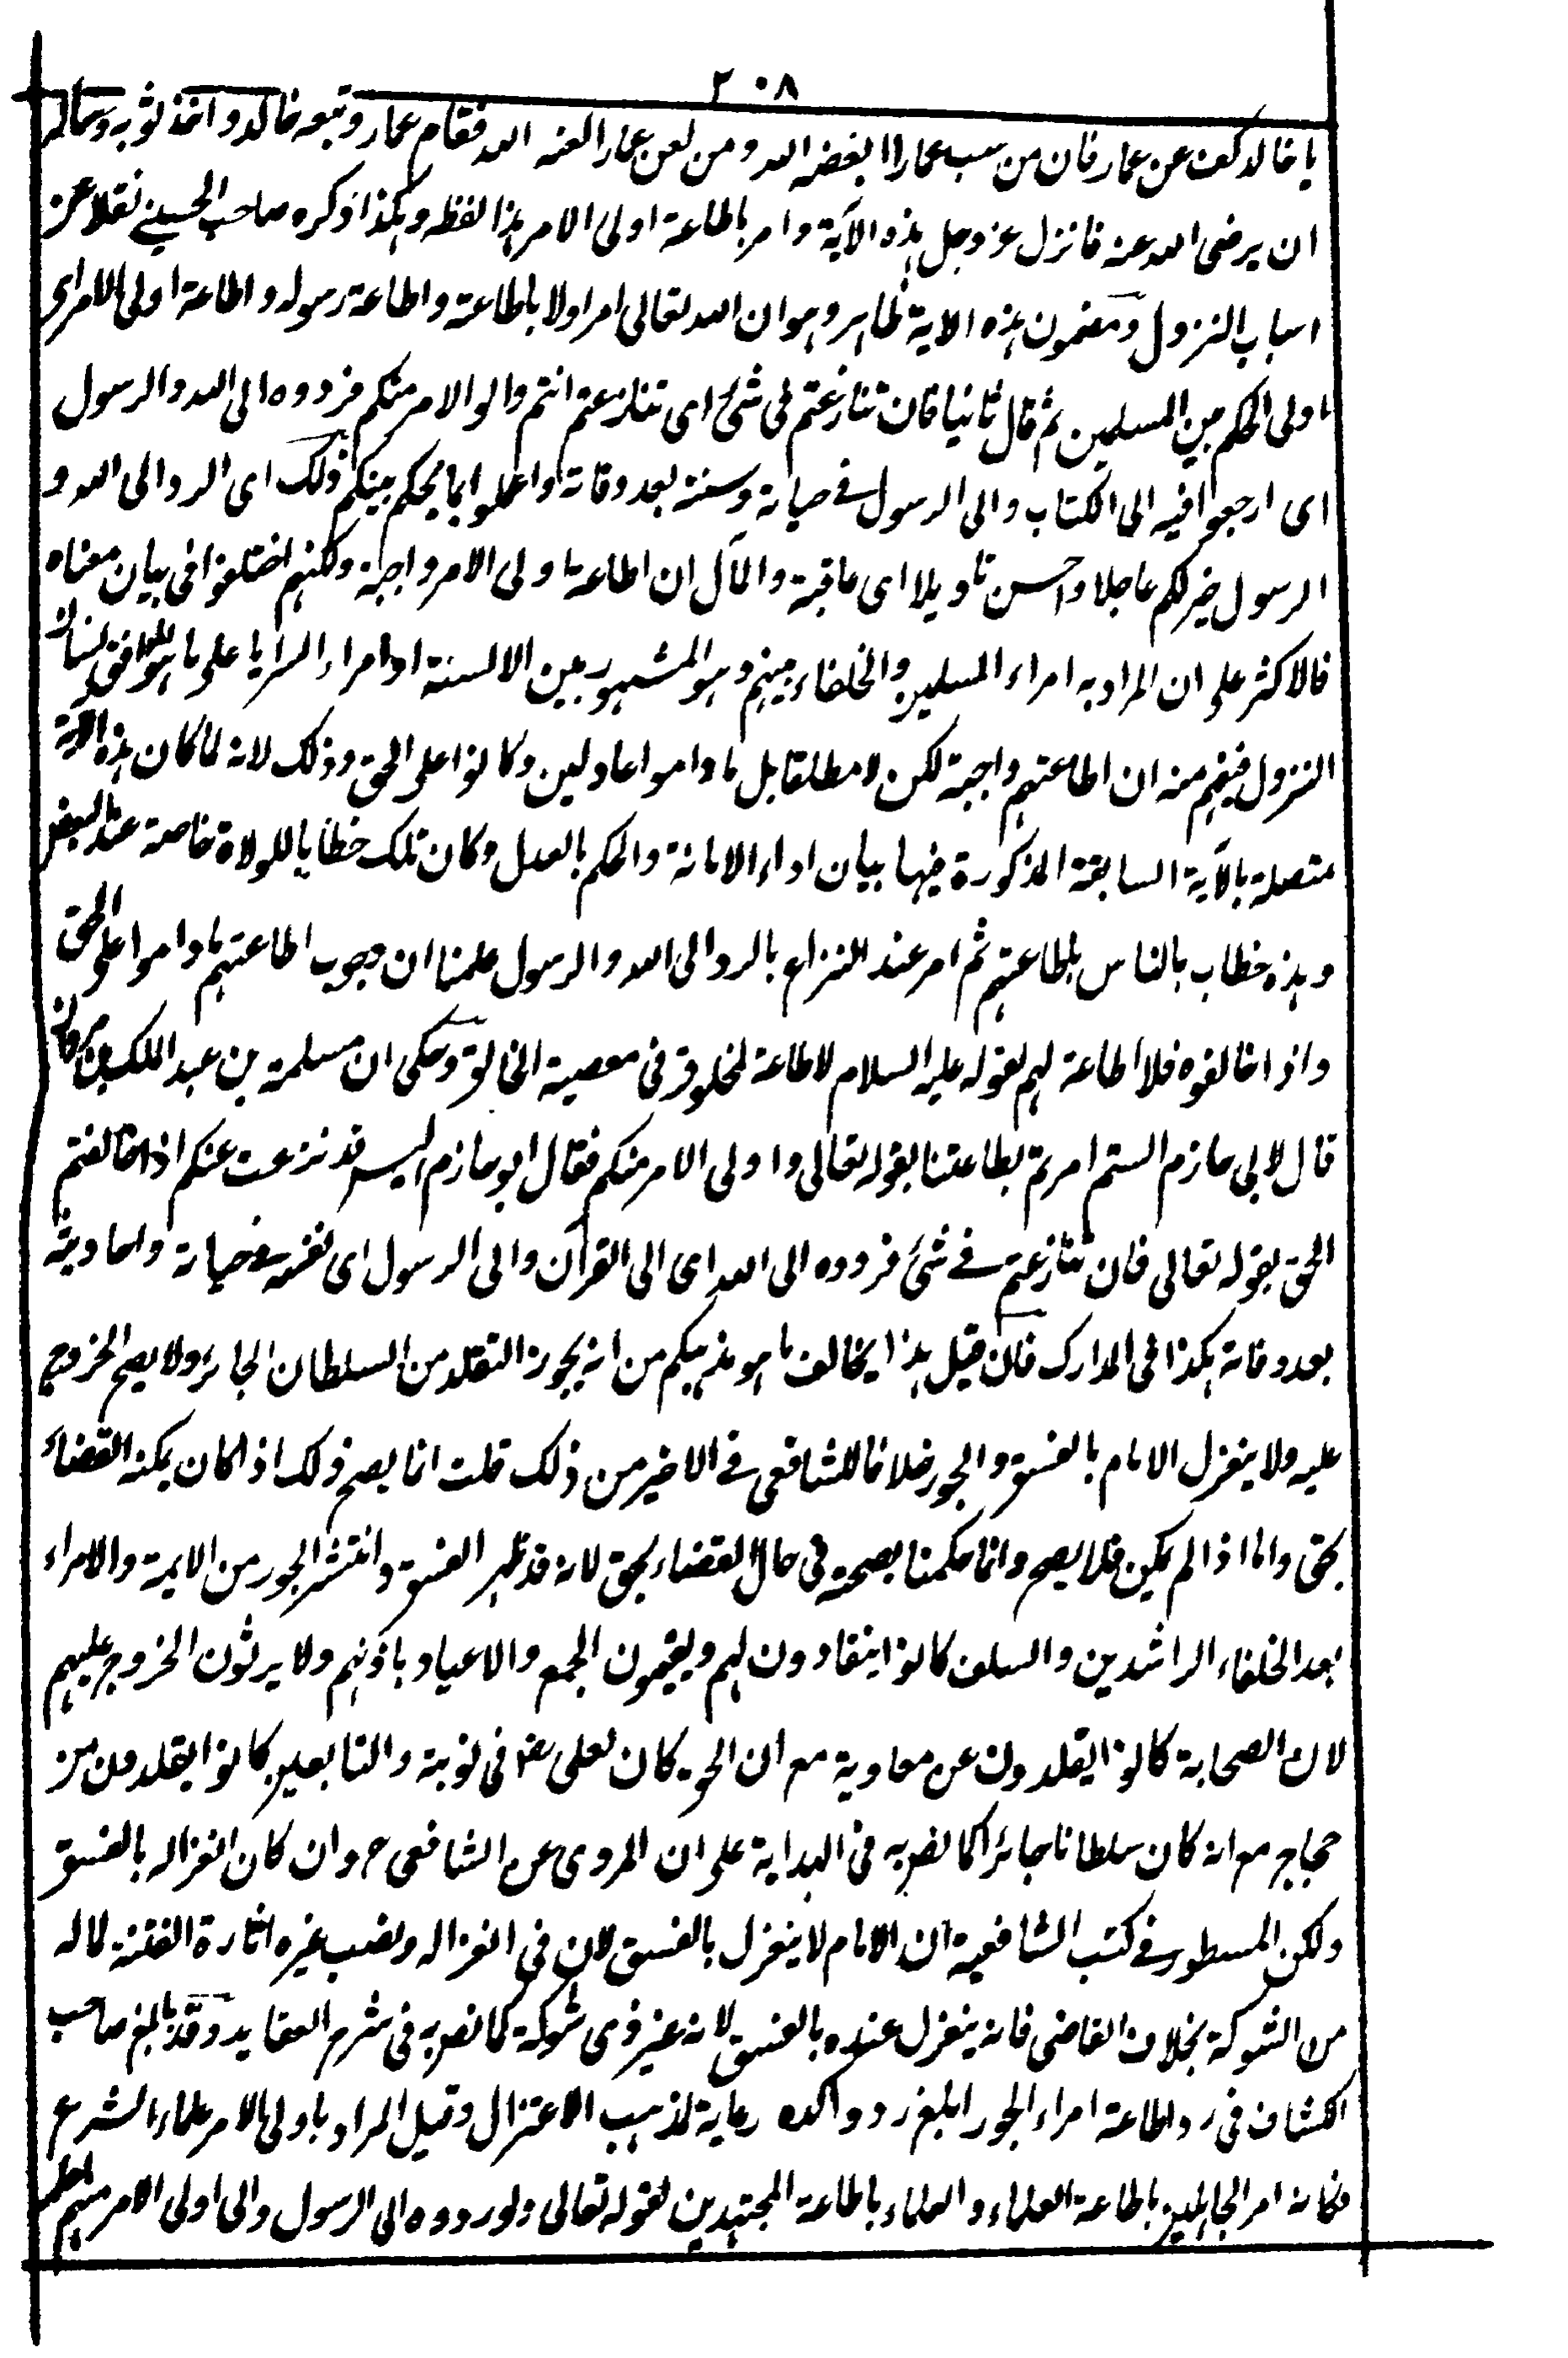 ٢٠٨
يا خالد كف عن عمار فان من سب عمارا ابغضه الله ومن لعن عمار العنه الله فقام عمار وتبعه خالد واخذ ثوبه وساله
ان يرضى الله عنه فانزل عز وجل هذه الآية وامر باطاعة اولى الامر هذا لفظه وهكذا ذكره صاحب الحسيني نقلا عن
اسباب النزول ومضمون هذه الاية ظاهر وهو ان الله تعالى امر اولا باطاعته واطاعة رسوله واطاعة اولى الامر اى
اولى الحكم من المسلمين ثم قال ثانيا فان تنازعتم فى شئ اى تنازعتم انتم والوا الامر منكم فردوه الى الله والرسول
اى ارجعوا فيه الى الكتاب والى الرسول فى حياته وسنته بعد وفاته واعملوا بما يحكم بينكم ذلك اى الرد الى الله و
الرسول خير لكم عاجلا واحسن تاويلا اى عاقبة والمآل ان اطاعة اولى الامر واجبة ولكنهم اختلفوا فى بيان معناه
فالاكثر على ان المراد به امراء المسلمين والخلفاء بينهم وهو المشهور بين الالسنة او امراء السرايا على ما هو الموافق لشان
النزول فيفهم منه ان اطاعتهم واجبة لكن لا مطلقا بل ما داموا عادلين وكانوا على الحق وذلك لانه لما كان هذه الآية
متصلة بالآية السابقة المذكورة فيها بيان اداء الامانة والحكم بالعدل وكان تلك خطابا للولاة خاصة عند البعض
وهذه خطاب بالناس باطاعتهم ثم امر عند النزاع بالرد الى الله والرسول علمنا ان وجوب اطاعتهم ما داموا على الحق
واذا خالفوه فلا اطاعة لهم لقوله عليه السلام لا طاعة لمخلوق فى معصية الخالق وحكى ان مسلمة بن عبد الملك بن مروان
قال لابى حازم الستم امرتم بطاعتنا بقوله تعالى واولى الامر منكم فقال ابو حازم اليس قد نزعت عنكم اذا خالفتم
الحق بقوله تعالى فان تنازعتم فى شئ فردوه الى الله اى الى القرآن والى الرسول اى نفسه فى حياته واحاديثه
بعد وفاته هكذا فى المدارك فان قيل هذا يخالف ما هو مذهبكم من انه يجوز التقلد من السلطان الجائر ولا يصح الخروج
عليه ولا ينعزل الامام بالفسق والجور خلافا للشافعى فى الاخير من ذلك قلت انما يصح ذلك اذا كان يمكنه القضاء
بحق واما اذا لم يمكن فلا يصح وانما حكمنا بصحته فى حال القضاء بحق لانه قد ظهر الفسق وانتشر الجور من الايمة والامراء
بعد الخلفاء الراشدين والسلف كانوا ينقادون لهم ويقيمون الجمع والاعياد باذنهم ولا يرثون الخروج عليهم
لان الصحابة كانوا يقلدون عن معاوية مع ان الحق كان لعلى رض فى نوبته والتابعين كانوا يقلدون من
حجاج مع انه كان سلطانا جائرا كما نص به فى الهداية على ان المروى عن الشافعى رح وان كان انعزاله بالفسق
ولكن المسطور فى كتب الشافعية ان الامام لا ينعزل بالفسق لان فى انعزاله ونصب غيره اثارة الفتنة لما له
من الشوكة بخلاف القاضى فانه ينعزل عنده بالفسق لانه غير ذى شوكة كما نص به فى شرح العقايد وقد بالغ صاحب
الكشاف فى رد اطاعة امراء الجور ابلغ رد واكده رعاية لمذهب الاعتزال وقيل المراد باولى الامر علماء الشرع
فكانه امر الجاهلين باطاعة العلماء والعلماء باطاعة المجتهدين لقوله تعالى ولو ردوه الى الرسول والى اولى الامر منهم لعلمه